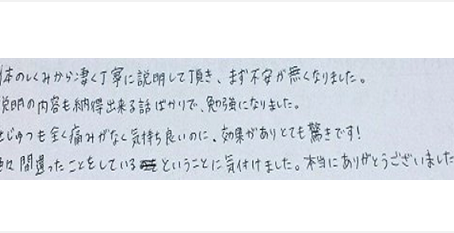 体のしくみから凄く丁寧に説明して頂き、まず不安が無くなりました。
説明の内容も納得出来る話ばかりで、勉強になりました。
せじゅつも全く痛みがなく気持ち良いのに、効果がありとても驚きです!
色々間違ったことをしているということに気付けました。本当にありがとうございました